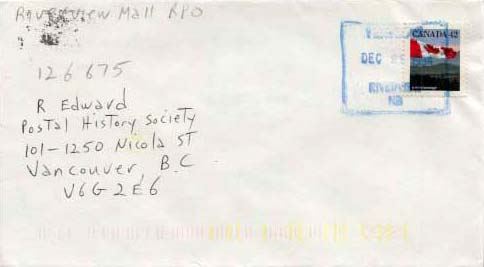 Riverview Mall RPO
126 675
R Edward
Postal History Society
101-1250 Nicola ST
Vancouver, B.C
V6G2E6
CANADA 42
DEC
NB